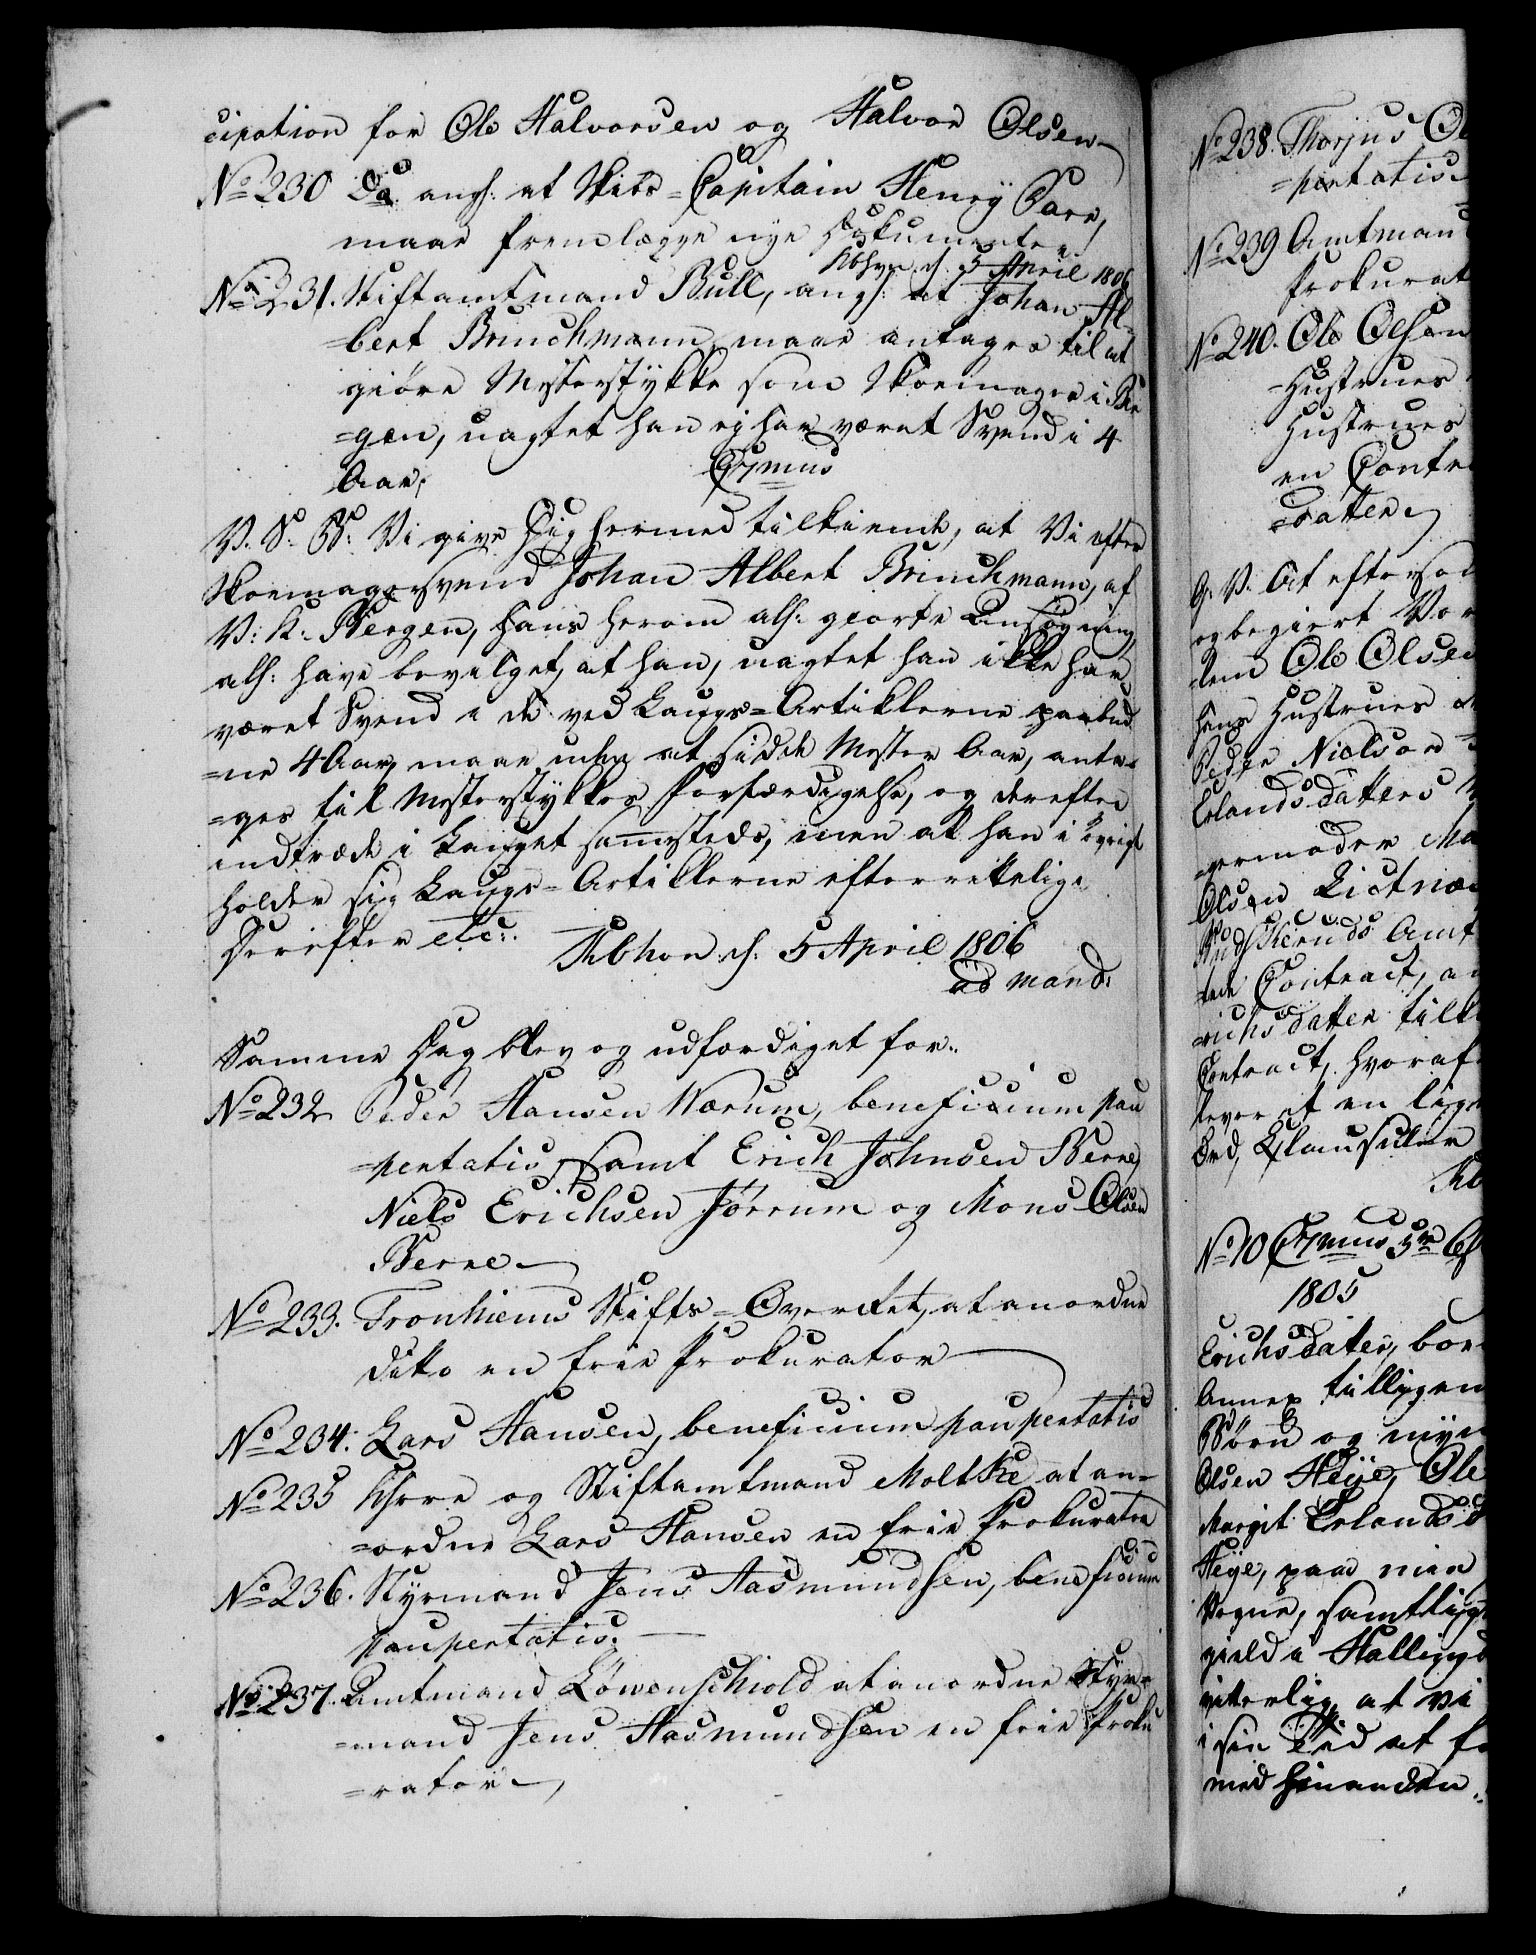 cipation for Ole Halvorsen og Halvor Olsen
No 230 Do angl: at Skibs-Capitain Henry Parr,
maae fremlægge nye Dokumenter.
Kbhvn d. 5 April 1806
No 231. Stiftamtmand Bull, angl: at Johan Al-
=bert Brinchmann, maae antages til at
giøre Mesterstykke som Skoemager i Ber
=gen, uagtet han ej har været Svend i 4
Aar.
C7mus
V. S. B: Vi give Dig hermed tilkiende, at Vi efter
Skoemagersvend Johan Albert Brinchmann, af
V: K: Bergen, hans herom all: giorte Ansøgning,
all: have bevilget, at han, uagtet han ikke har
været Svend i de ved Laugs=Artiklerne paabud
=ne 4 Aar, maae uden at sidde Mester Aar, anta=
=ges til Mesterstykkes Forfærdigelse, og derefter
indtræde i Lauget sammesteds, men at han i øvrigt
holder sig Laugs=Artiklerne efterrettelig.
Derefter etc:.
Kbhvn: d: 5 April 1806
ad mand:
Samme Dag blev og udfærdiget for..
No 232 Peder Hansen Wærum, beneficium pau
=pertatis, samt Erich Johnsen Berre,
Niels Erichsen Jørrum og Mons Olsen
Berre
No 233. Tronhiems Stifts=Overret, at anordne
dito en frie Prokurator
No 234. Lars Hansen, beneficium paupertatis
No 235 Herre og Stiftamtmand Moltke at an=
=ordne Lars Hansen en frie Prokurator
No 236. Styrmand Jens Aasmundsen, beneficium
paupertatis.
No 237. Amtmand Løwenschiold at anordne Styr=
=mand Jens Aasmundsen en frie Proku
=rator
No 238. Thorjus Ol
=pertatis
No 239 Amtmand
Prokurat
No 240. Ole Olsen
Hustrues
Hustrues
en Contr
=datter
G. V. At eftersom
og begiert Vor
dem Ole Olsen
hans Hustrues
Peder Nielsen
Erlandsdatters
=germoder Ma
Olsen
Buskeruds Amt
=tede Contract, a
=richsdatter tilli
Contract, hvoraf
lever et en lig
Ord, Clausuler
Kb
No 10 C7mus 5te
1805
Erichsdatter, bor
Annex tilligem
Børn og myn
Olsen Heye, Ole
Margit Erlandsd
Heye, paa min
Vegne, samtlige
gield i Hallingd
vitterlig, at vi
i sin Tid at f
med hinanden.